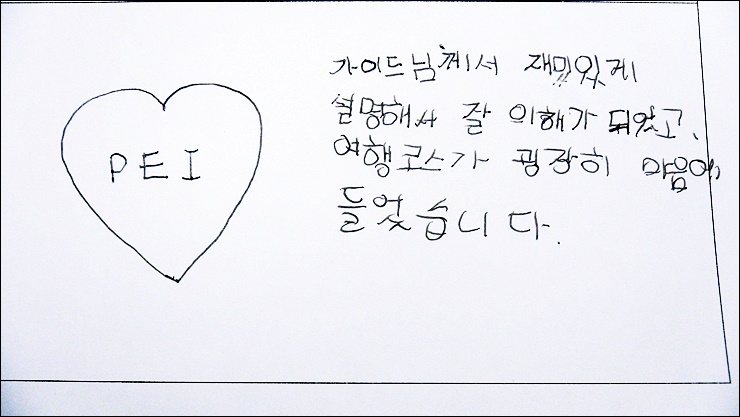 PEI
가이드님께서 재미있게
설명해서 잘 이해가 되었고,
여행코스가 굉장히 마음에
들었습니다.